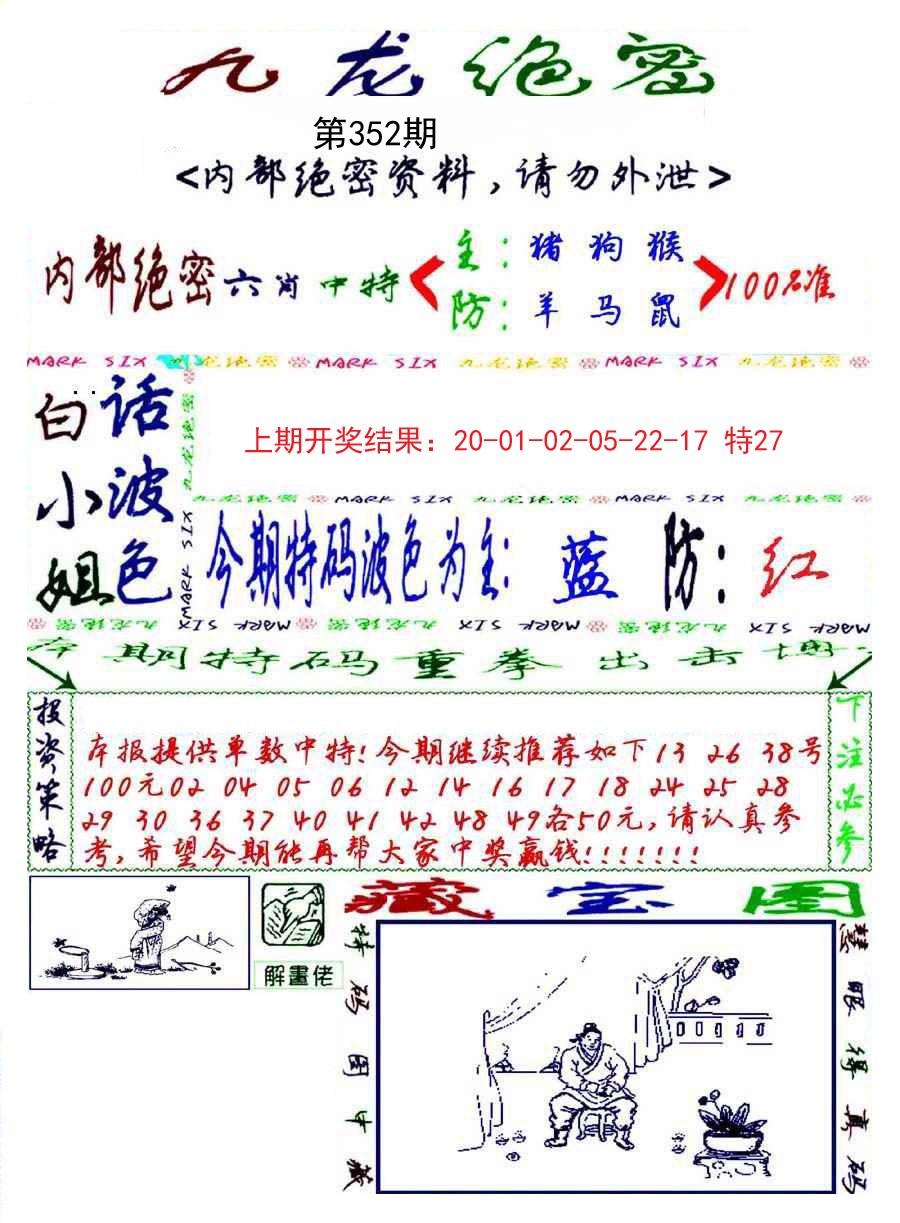 九龙绝密
第352期
<内部绝密资料,请勿外泄>
内部绝密六肖中特
主:猪狗猴
防:羊马鼠
100%准
MARK SIX 九龙绝密 MARK SIX 九龙绝密 MARK SIX 九龙绝密
白小姐
话波色
九龙绝密
MARK SIX
上期开奖结果：20-01-02-05-22-17 特27
九龙绝密 MARK SIX 九龙绝密 MARK SIX 九龙绝密
今期特码波色为主:蓝 防:红
九龙绝密 MARK SIX 九龙绝密 SIX MARK 九龙绝密 SIX MARK
本期特码重拳出击
投资策略
本报提供单数中特!今期继续推荐如下13 26 38号
100元02 04 05 06 12 14 16 17 18 24 25 28
29 30 36 37 40 41 42 48 49各50元,请认真参
考,希望今期能再帮大家中奖赢钱!!!!!!!
下注必参
解畫佬
藏宝图
特码图中藏
慧眼得真码